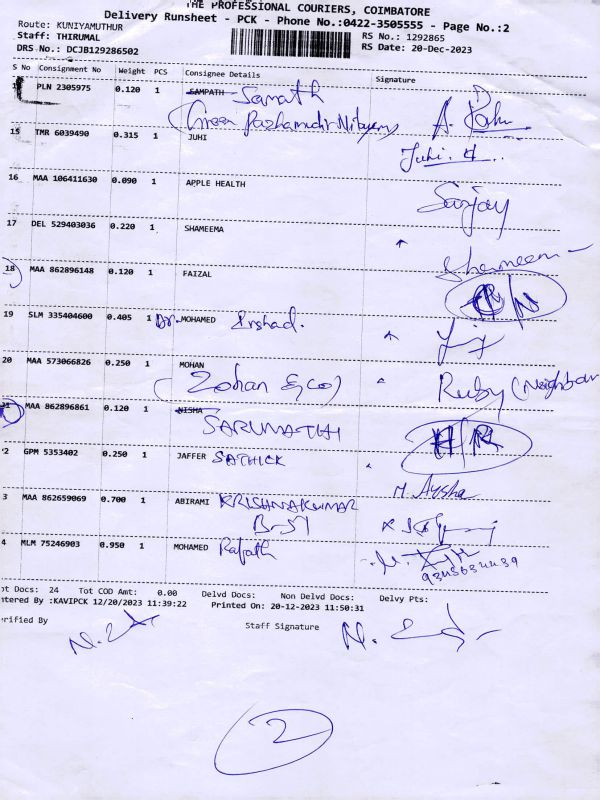 THE PROFESSIONAL COURIERS, COIMBATORE
Delivery Runsheet - PCK - Phone No.:0422-3505555 - Page No.:2
Route: KUNIYAMUTHUR RS No.: 1292865
Staff: THIRUMAL RS Date: 20-Dec-2023
DRS No.: DCJB129286502
S No Consignment No Weight PCS Consignee Details Signature
PLN 2305975 0.120 1 SAMPATH Samath
Green
15 TMR 6039490 0.315 1 JUHI Juhi
16 MAA 106411630 0.090 1 APPLE HEALTH Sanjay
17 DEL 529403036 0.220 1 SHAMEEMA Shameem
18 MAA 862896148 0.120 1 FAIZAL
19 SLM 335404600 0.405 1 Dr. MOHAMED Ershad.
20 MAA 573066826 0.250 1 MOHAN
Zohan & (co) Ruby (Neighbour
21 MAA 862896861 0.120 1 NISHA
SARUMATHI
2 GPM 5353402 0.250 1 JAFFER SATHICK M. Aysha
3 MAA 862659069 0.700 1 ABIRAMI KRISHNAKUMAR
B-51
4 MLM 75246903 0.950 1 MOHAMED Rafath
ot Docs: 24 Tot COD Amt: 0.00 Delvd Docs: Non Delvd Docs: Delvy Pts:
ntered By :KAVIPCK 12/20/2023 11:39:22 Printed On: 20-12-2023 11:50:31
erified By Staff Signature
2